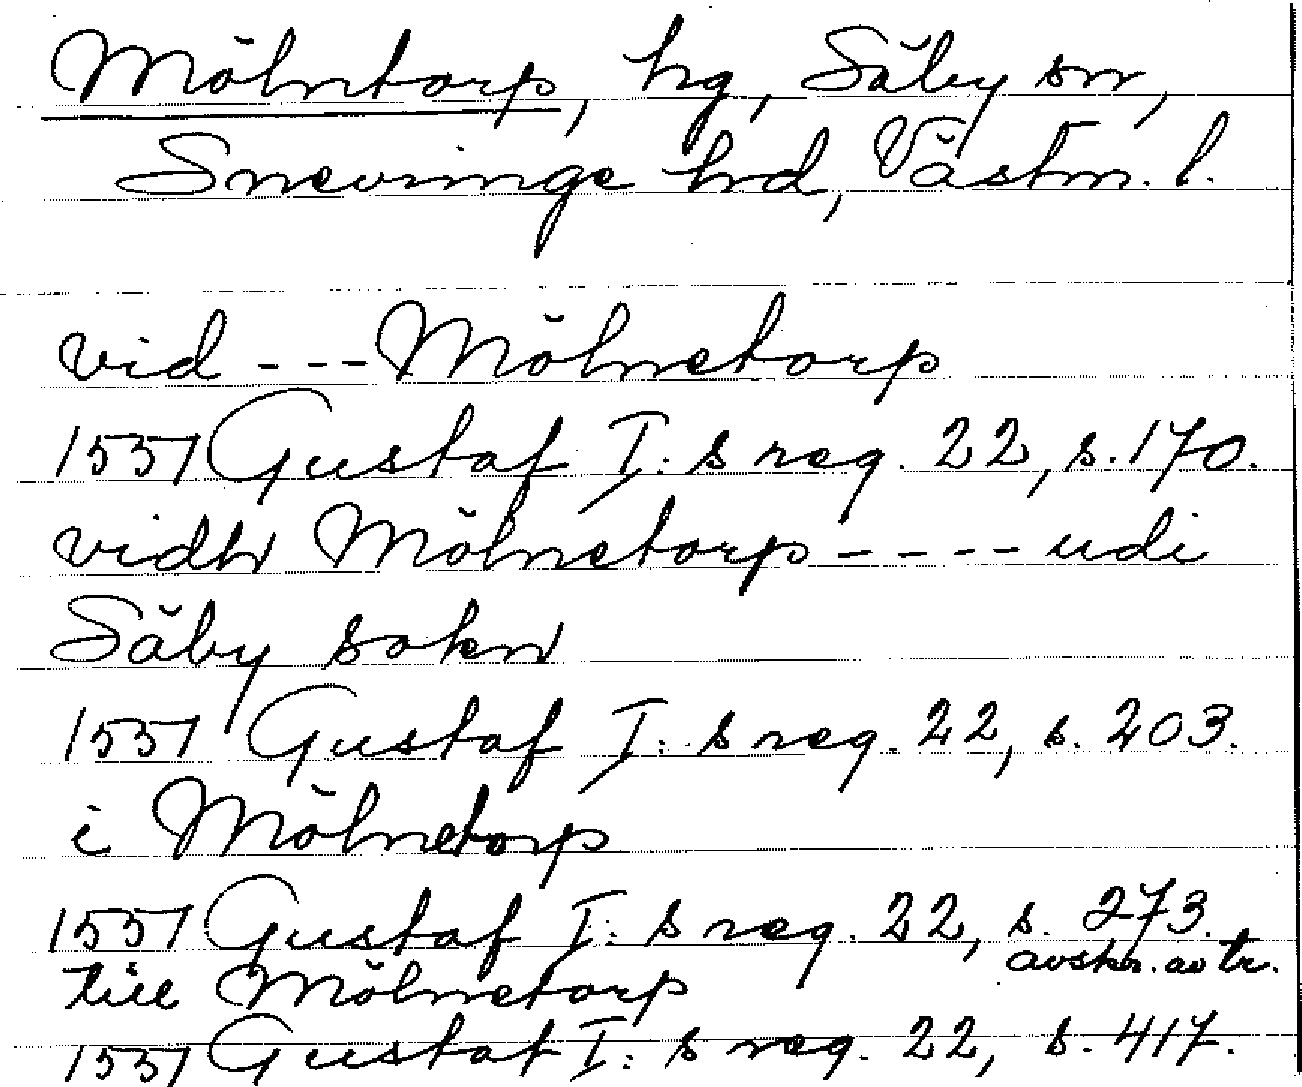 Mölntorp, hg, Säby sn,
Snevringe hd, Västm. l.
vid - - - Mölnetorp
1551 Gustaf I: s reg. 22, s. 170.
vidh Mölnetorp - - - - udi
Säby sokn
1551 Gustaf I: s reg. 22, s. 203.
i Mölnetorp
1551 Gustaf I: s reg. 22, s. 273.
avskr. av tr.
till Mölnetorp
1551 Gustaf I: s reg. 22, s. 417.